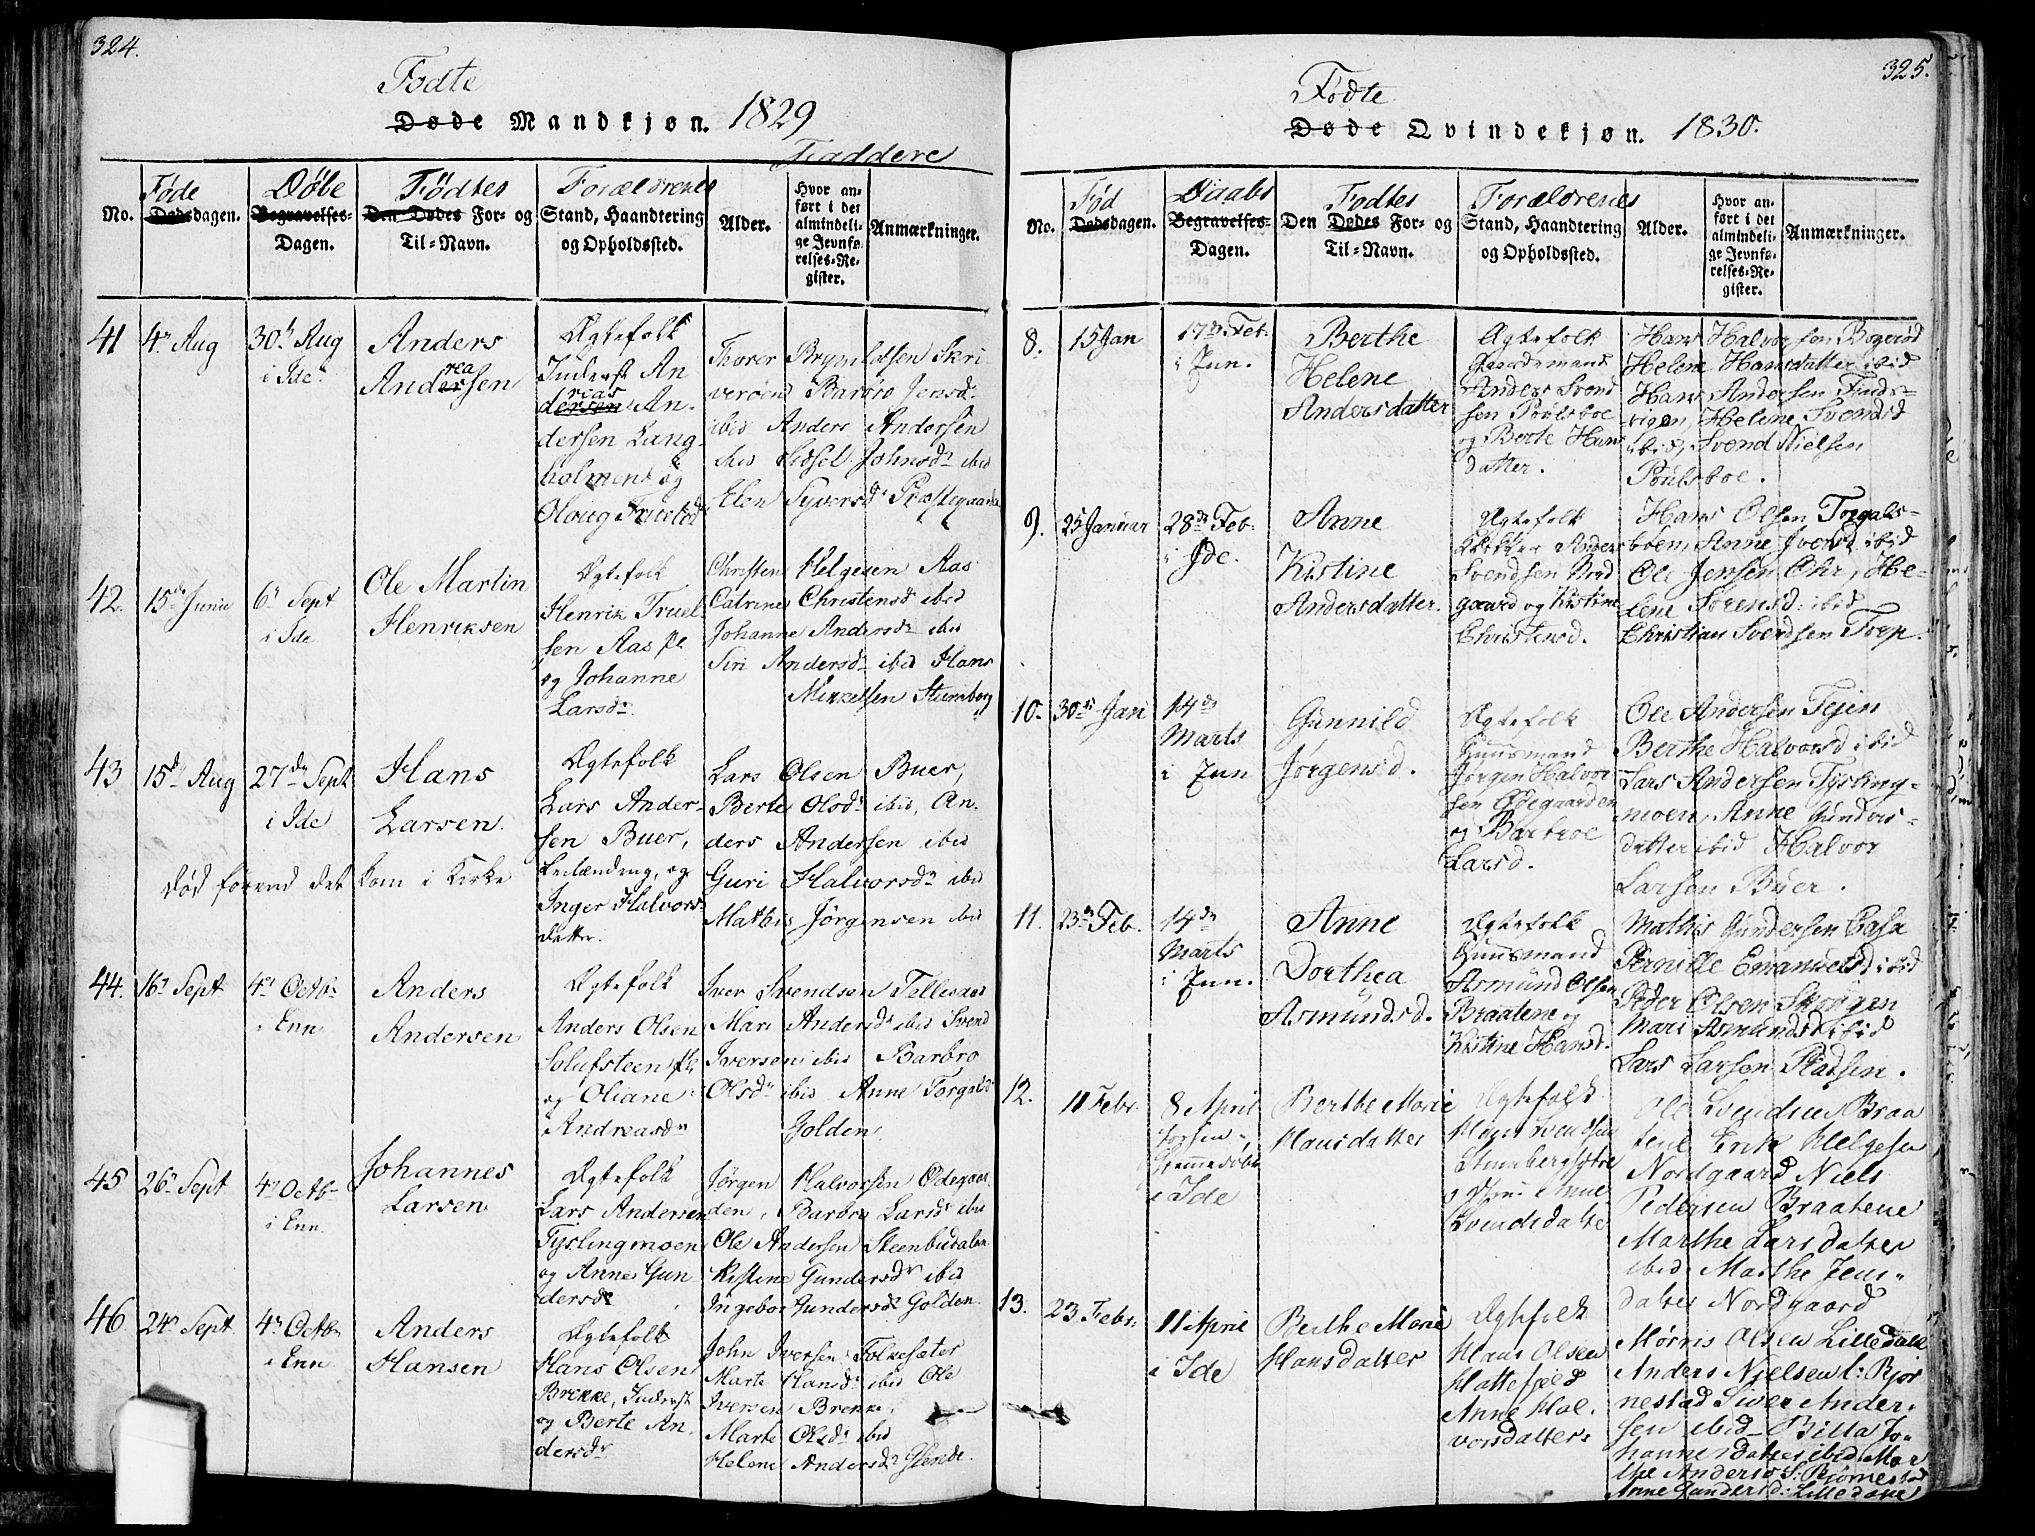 324.
Fødte
Døde Mandkjøn. 1829
Faddere
No.
Føde
Dødsdagen.
Døbe
Begravelses-
Dagen.
Fødtes
Den Dødes For- og
Til-Navn.
Forældrenes
Stand, Haandtering
og Opholdssted.
Alder.
Hvor an-
ført i det
almindeli-
ge Jevnfø-
relses-Re-
gister.
Anmærkninger.
41
4 Aug
30 Aug
i Ide
Anders
Andersen
rea
Ægtefolk
Inderst An
dersen An-
reas
dersen Lang-
holmen og
Oloug
Thorer Brynildsen Skri
verøen Barbro Jensd.
ibid Anders Andersen
ibid Sidsel Johnsd ibid
Elen Syversd Præstegaarden
42.
15de Junii
6 Sept
i Ide
Ole Martin
Henriksen
Ægtefolk
Henrik Truel
sen Aas pl
og Johanne
Larsdr
Christen Helgesen Aas
Catrine Christensd ibid
Johanne Andersdr ibid
Siri Andersdr ibid Hans
Mikkelsen Stumberg
43
15de Aug
27de Sept
i Ide
Hans
Larsen
Død førend det kom i Kirke
Ægtefolk
Lars Ander-
sen Buer,
Leilænding, og
Inger Halvors-
datter.
Lars Olsen Buer,
Berte Olsdr ibid, An-
ders Andersen ibid
Guri Halvorsdr ibid
Mathis Jørgensen ibid
44.
16 Sept
4 Octbr
i Enn
Anders
Andersen
Ægtefolk
Anders Olsen
Solufsteen pl
og Oliane
Andreasdr
Iver Svendsen Tellesaas
Mari Andersdr ibid Svend
Iversen ibid Barbro
Olsdr ibid Anne Torgalsd
Golden
45
26 Sept
4 Octbr
i Enn
Johannes
Larsen
Ægtefolk
Lars Andersen
Tyslingmoen
og Anne Gun
dersdr
Jørgen Halvorsen Ødegaar
den, Barbro Larsdr ibid
Ole Andersen Steenbudalen
Kistine Gundersdr ibid
Ingebor Gundersdr Golden
46
24 Sept
4 Octbr
i Enn
Anders
Hansen
Ægtefolk
Hans Olsen
Brekke, Inderst
og Berte An
dersdr
John Iversen Folkesæter
Marte Hansdr ibid Ole
Iversen Brekke
Marte Olsdr ibid
Helene Andersdr Glende.
325.
Fødte
Døde Qvindekjøn. 1830.
No.
Fød
Dødsdagen.
Daabs
Begravelses-
Dagen.
Fødtes
Den Dødes For- og
Til-Navn.
Forældrenes
Stand, Haandtering
og Opholdssted.
Alder.
Hvor an-
ført i det
almindeli-
ge Jevnfø-
relses-Re-
gister.
Anmærkninger.
8.
15 Jan
17de Feb.
i Enn.
Berthe
Helene
Andersdatter
Ægtefolk
Gaardmand
Anders Svend
sen Poulsboe
og Berte Hans
datter.
Hans Halvorsen Bøgerød
Helene Hansdatter ibid
Hans Andersen Tids-
vigen, Helene Svendsd
ibid, Svend Nielsen
Poulsboe.
9.
25 Januar
28de Feb.
i Ide.
Anne
Kistine
Andersdatter.
Ægtefolk
Klokker Anders
Svendsen Nord
gaard og Kistine
Christensd.
Hans Olsen Torgals-
boen, Anne Iversd ibid
Ole Jensen Ohr, He-
lene Sørensd. ibid
Christian Svendsen Torp.
10.
30te Jan
14de
Marts
i Enn
Gunnild
Jørgensd.
Ægtefolk
Huusmand
Jørgen Halvor
sen Ødegaarden
og Barbroe
Larsd.
Ole Andersen Tejen
Berthe Halvorsd ibid
Lars Andersen Tysling-
moen, Anne Gunders-
datter ibid Halvor
Larsen Buer.
11.
23de Feb.
14de
Marts
i Enn.
Anne
Dorthea
Asmundsd.
Ægtefolk
Huusmand
Asmund Olsen
Braatene og
Kistine Hansd.
Mathis Gundersen
Pernille Emanuelsd ibid
Peder Olsen Skrøgen
Mari Asmundsd ibid
Lars Larsen
12.
11 Febr.
8 April
i Ide
Berthe Marie
Hansdatter
Ægtefolk
Hans Svendsen
Anne
Svendsdatter
Ole Svendsen Braa
tene Erik Helgesen
Nordgaard Niels
Pedersen Braatene
Marthe Larsdatter
ibid Marthe Jens-
datter Nordgaard
13.
23 Febr.
11 April
i Ide
Berthe Marie
Hansdatter
Ægtefolk
Hans Olsen
Hattefjeld
Anne Hal-
vorsdatter
Mørris Olsen Lilledall
Anders Nielsen l: Bjør
nestad Siver Ander-
sen ibid Bitta Jo-
hannesdatter ibid Mar
the Andersd S: Bjørnestad
Anne Gundersd: Lilledalle